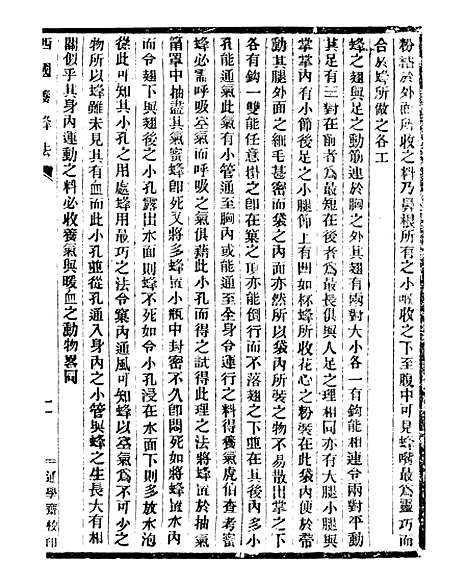 粉黏於外面所收之料乃鼻根所有之小喉收之下至腹中可見蜂嘴最爲靈巧而
合於蜂所做之各工
蜂之翅與足之動筋連於胸之外其翅有兩對大小各一有鈎能相連令兩對平動
其足有三對在前者爲最短在後者爲最長俱與人足之理相同亦有大腿小腿與
掌掌內有小節後足之小腿飾上有凹如杯蜂所收花心之粉裝在此袋內便於帶
動其腿外面之細毛甚密而袋之內面亦然所以袋內所裝之物不易散出掌之下
各有鈎一雙能任意掛之卽在窠之頂亦能倒行而不落翅之下並在其後內多小
孔能通氣此氣有小管通至胸內或能通至全身令運行之料得養氣虎伯查考蜜
蜂必需呼吸空氣而呼吸之氣俱藉此小孔而得之試得此理之法將蜂置於抽氣
筩罩中抽盡其氣蜜蜂卽死又將多蜂置小瓶中封密不久卽悶死如將蜂置水內
而令翅下與翅後之小孔露出水面則蜂不死如令小孔浸在水面下則多放水泡
從此可知其小孔之用處蜂用最巧之法令窠內通風可知蜂以空氣爲不可少之
物所以蜂雖未見其有血而此小孔並從孔通入身內之小管與蜂之生長大有相
關似乎其身內運動之料必收養氣與暖血之動物畧同
西國養蜂法
二
通學齋校印